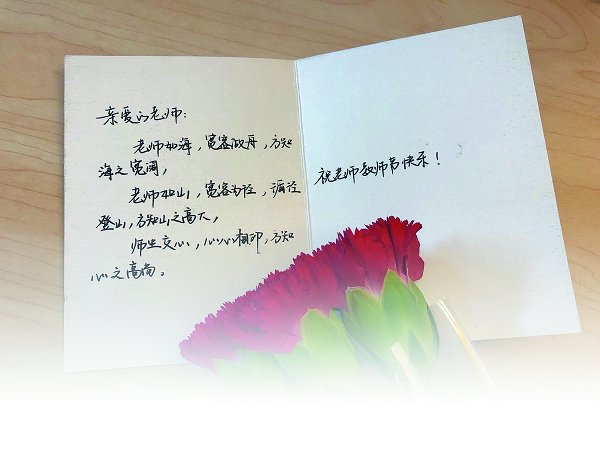 亲爱的老师:
老师如海,宽容做舟,方知
海之宽阔,
老师如山,宽容为径,循径
登山,方知山之高大,
师生交心,心心相印,方知
心之高尚。
祝老师教师节快乐!